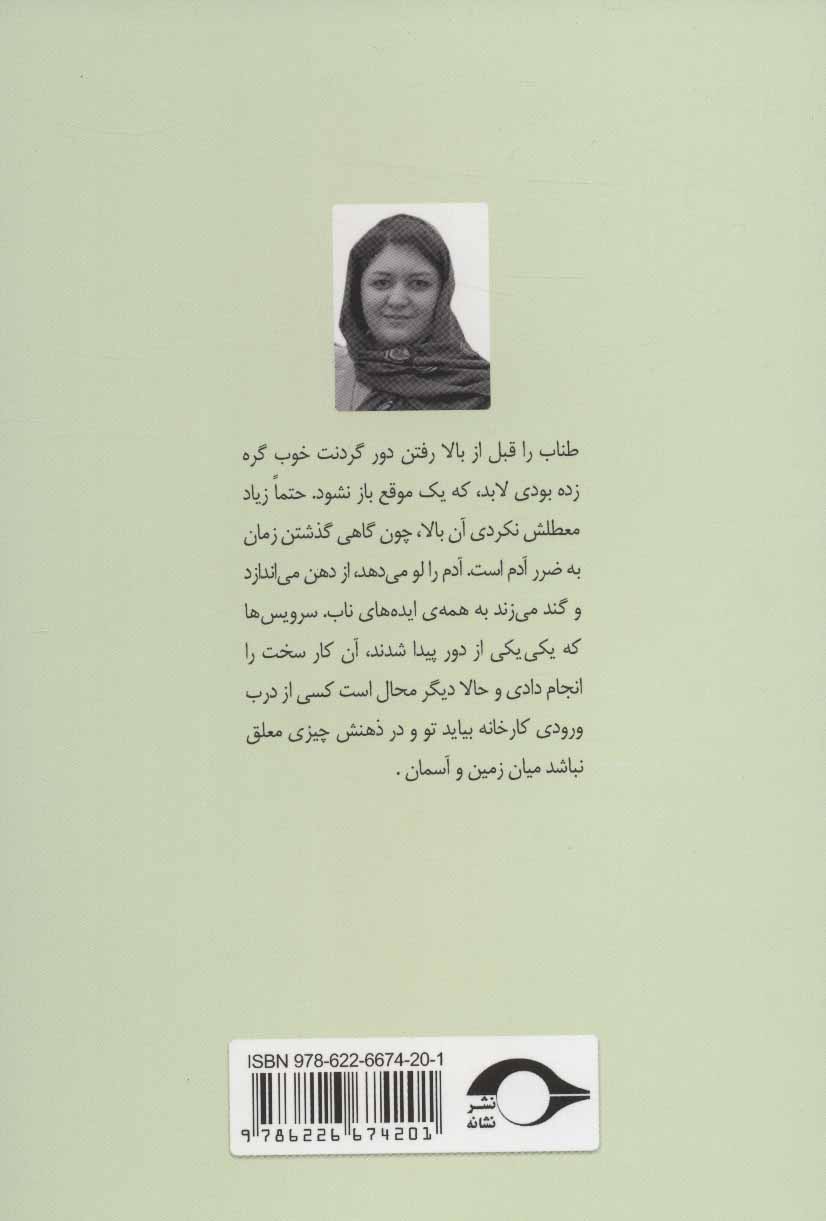 طناب را قبل از بالا رفتن دور گردنت خوب گره
زده بودی لابد، که یک موقع باز نشود. حتماً زیاد
معطلش نکردی آن بالا، چون گاهی گذشتن زمان
به ضرر آدم است. آدم را لو می‌دهد، از دهن می‌اندازد
و گند می‌زند به همه‌ی ایده‌های ناب. سرویس‌ها
که یکی‌یکی از دور پیدا شدند، آن کار سخت را
انجام دادی و حالا دیگر محال است کسی از درب
ورودی کارخانه بیاید تو و در ذهنش چیزی معلق
نباشد میان زمین و آسمان .
ISBN 978-622-6674-20-1
9 786226 674201
نشر
نشانه